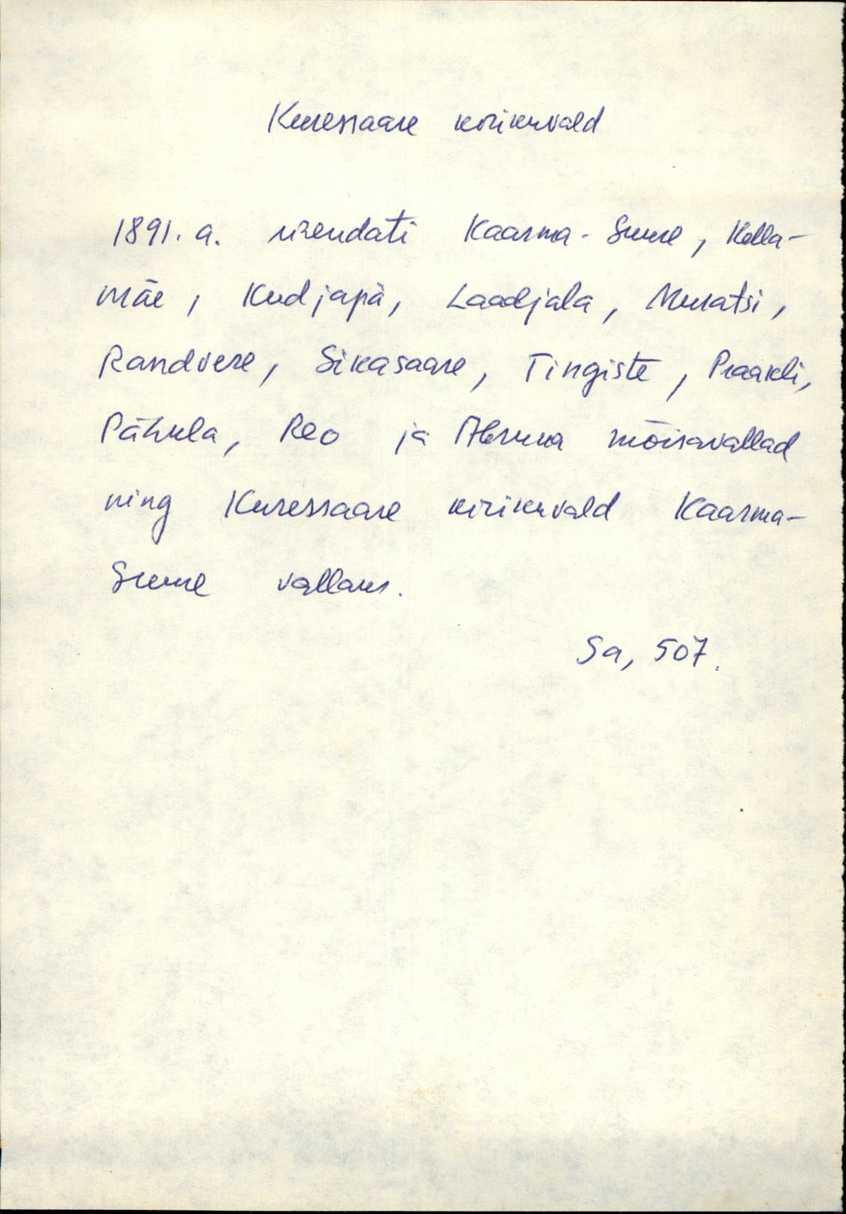 Kuressaare kirikuvald
1891. a. ühendati Kaarma-Suure, Kella-
mäe, Kudjapä, Laadjala, Muratsi,
Randvere, Sikasaare, Tingiste, Praakli,
Pähkla, Reo ja Abruka mõisavallad
ning Kuressaare kirikuvald Kaarma-
Suure vallaks.
Sa, 507.